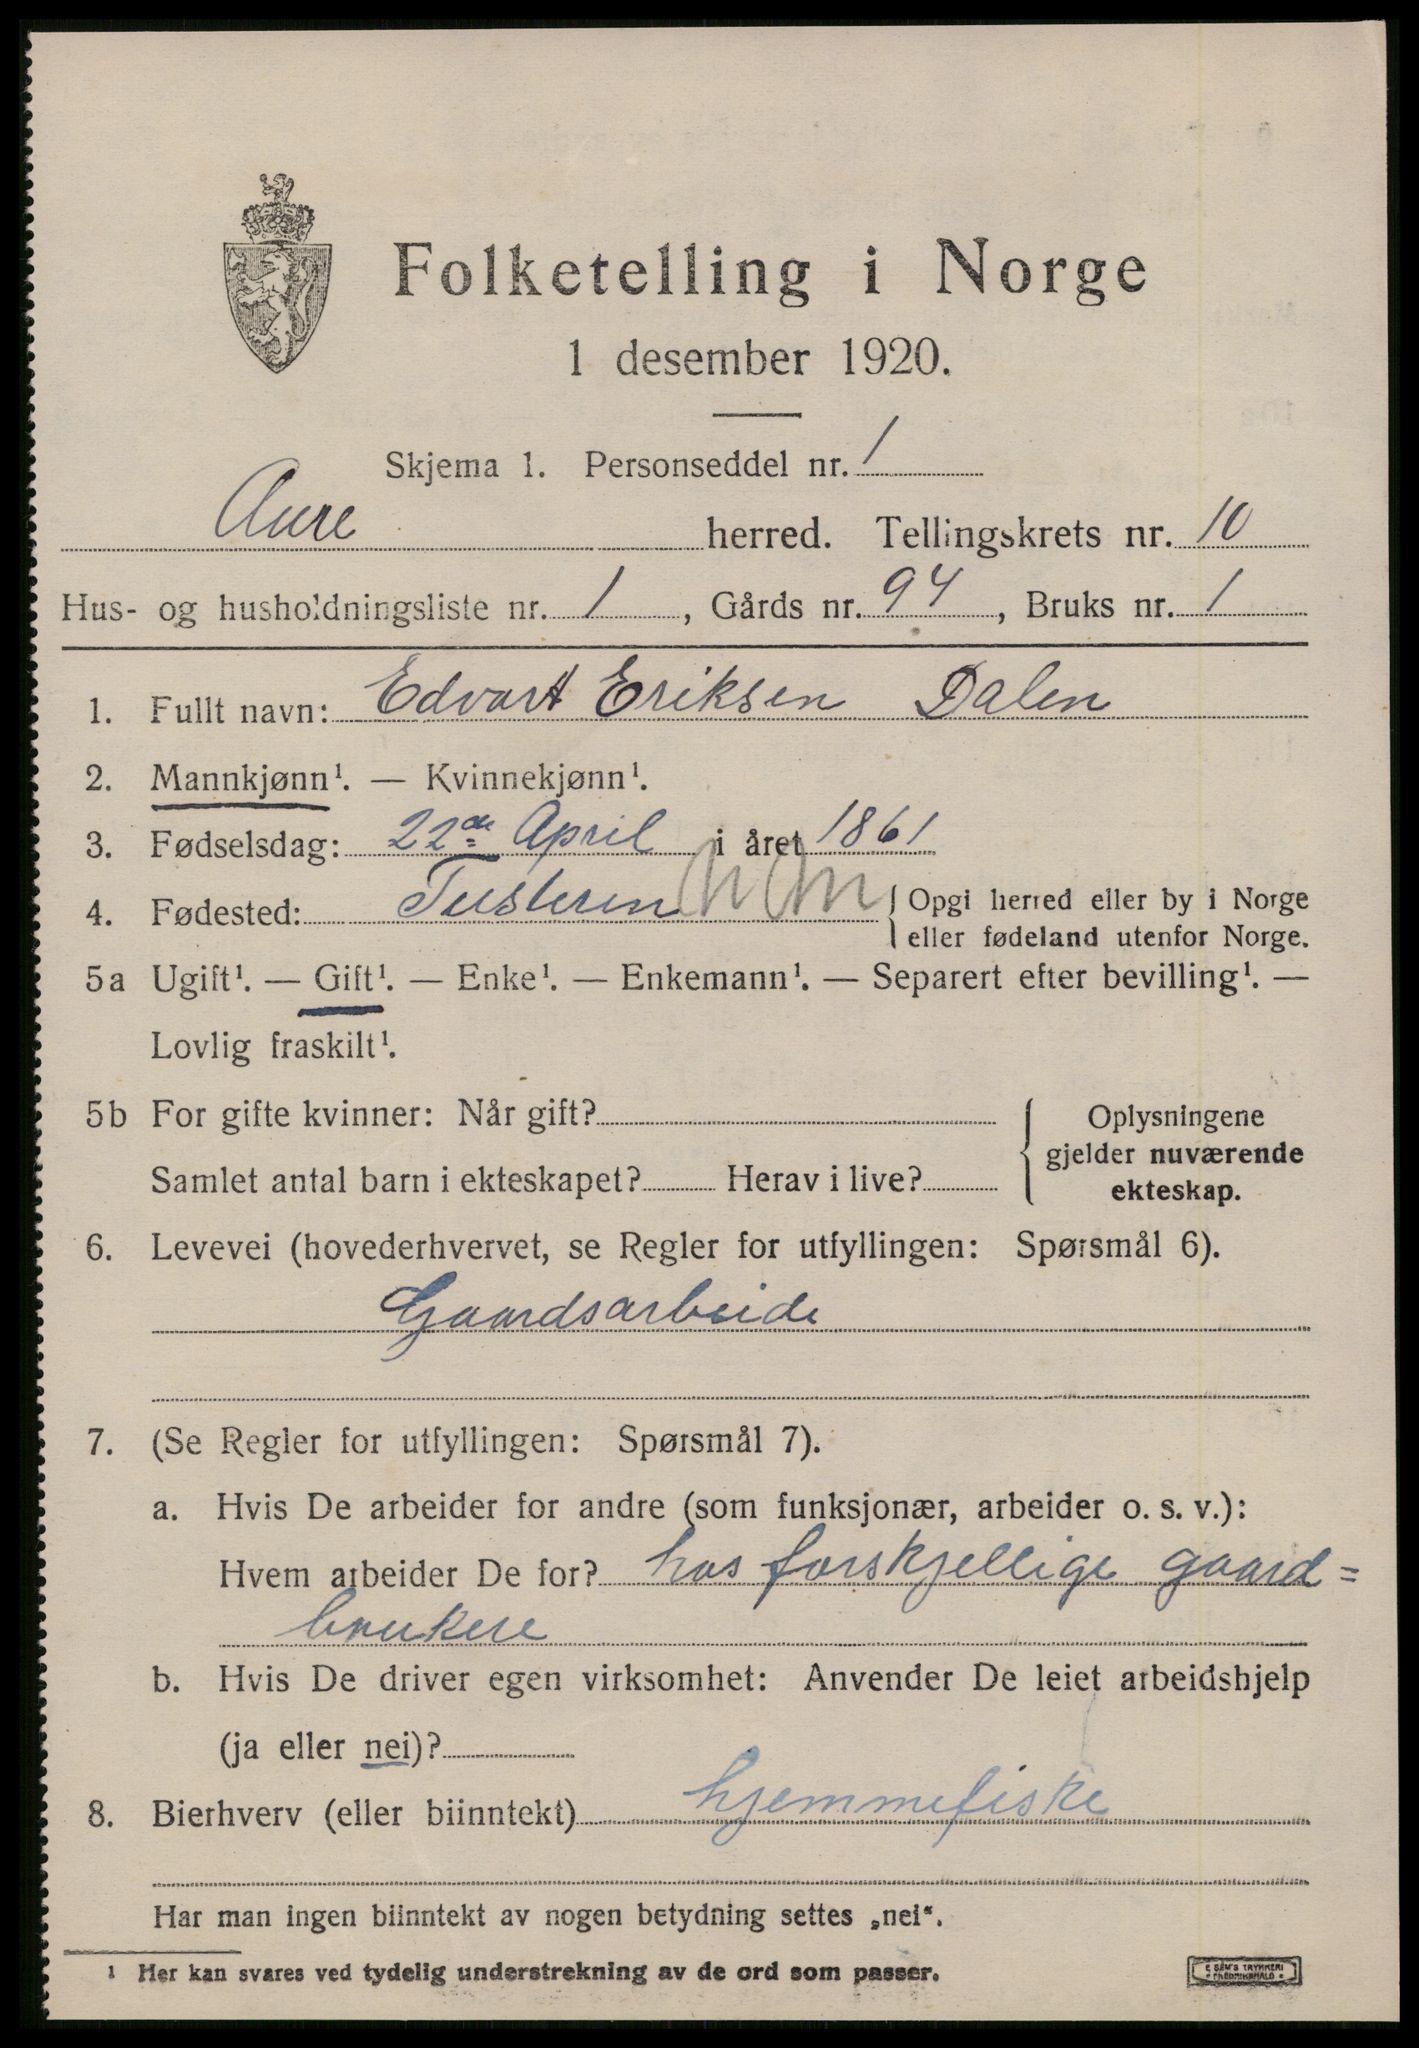 Folketelling i Norge
1 desember 1920.
Skjema 1. Personseddel nr. 1
Aure herred. Tellingskrets nr. 10
Hus- og husholdningsliste nr. 1, Gårds nr. 94, Bruks nr. 1
1. Fullt navn: Edvart Eriksen Dalen
2. Mannkjønn¹. — Kvinnekjønn¹.
3. Fødselsdag: 22de April i året 1861
4. Fødested: Tusteren { Opgi herred eller by i Norge
eller fødeland utenfor Norge.
5a Ugift¹. — Gift¹. — Enke¹. — Enkemann¹. — Separert efter bevilling¹. —
Lovlig fraskilt¹.
5b For gifte kvinner: Når gift? { Oplysningene
gjelder nuværende
Samlet antal barn i ekteskapet? Herav i live? ekteskap.
6. Levevei (hovederhvervet, se Regler for utfyllingen: Spørsmål 6).
Gaardsarbeide
7. (Se Regler for utfyllingen: Spørsmål 7).
a. Hvis De arbeider for andre (som funksjonær, arbeider o. s. v.):
Hvem arbeider De for? hos forskjellige gaard=
brukere
b. Hvis De driver egen virksomhet: Anvender De leiet arbeidshjelp
(ja eller nei)?
8. Bierhverv (eller biinntekt) hjemmefiske
Har man ingen biinntekt av nogen betydning settes „nei“.
¹ Her kan svares ved tydelig understrekning av de ord som passer.
E SEM'S TRYKKERI
FREDRIKSHALD